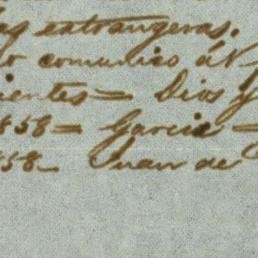 as extrangeras.
lo comunico á V
ientes = Dios g
1858 = Garcia =
858_ Juan de